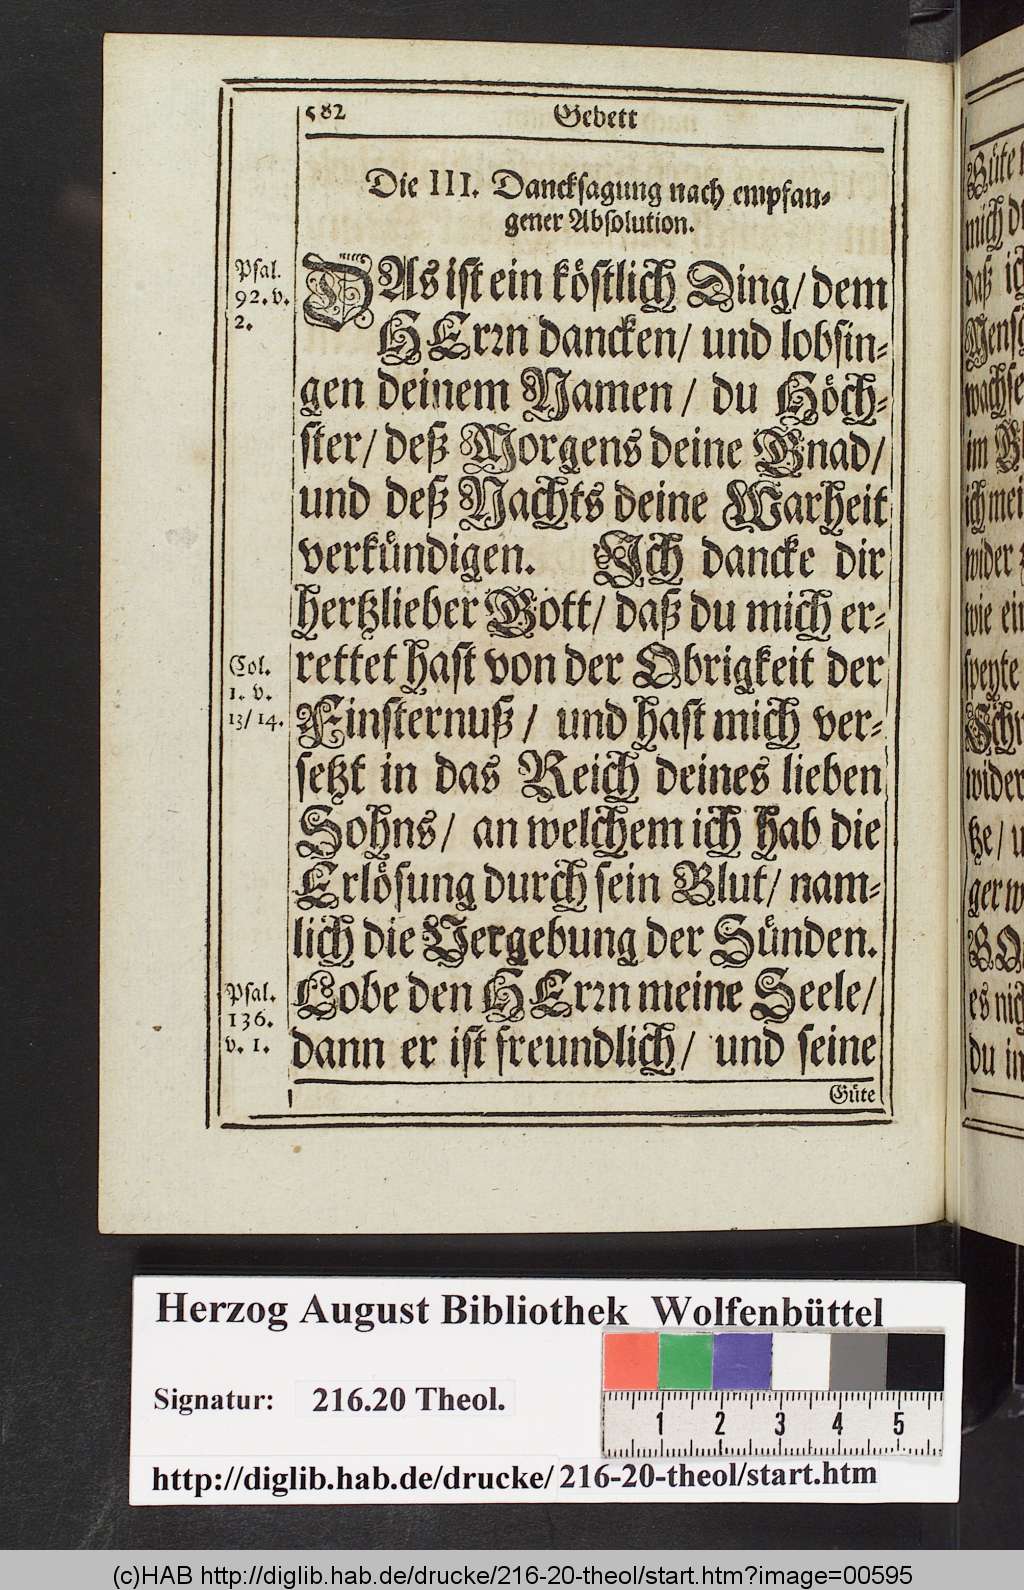 582 Gebett
Die III. Dancksagung nach empfan-
gener Absolution.
Psal.
92. v.
2.
DAs ist ein köstlich Ding/ dem
HErrn dancken/ und lobsin-
gen deinem Namen/ du Höch-
ster/ deß Morgens deine Gnad/
und deß Nachts deine Warheit
verkündigen. Ich dancke dir
hertzlieber Gott/ daß du mich er-
Col.
1. v.
13/14.
rettet hast von der Obrigkeit der
Finsternuß/ und hast mich ver-
setzt in das Reich deines lieben
Sohns/ an welchem ich hab die
Erlösung durch sein Blut/ nam-
lich die Vergebung der Sünden.
Psal.
136.
v. 1.
Lobe den HErrn meine Seele/
dann er ist freundlich/ und seine
Güte
Güte
mich
daß ich
im
ich
wider
wie
speyte
wider
es
du
Herzog August Bibliothek Wolfenbüttel
Signatur: 216.20 Theol.
1 2 3 4 5
http://diglib.hab.de/drucke/216-20-theol/start.htm
(c)HAB http://diglib.hab.de/drucke/216-20-theol/start.htm?image=00595